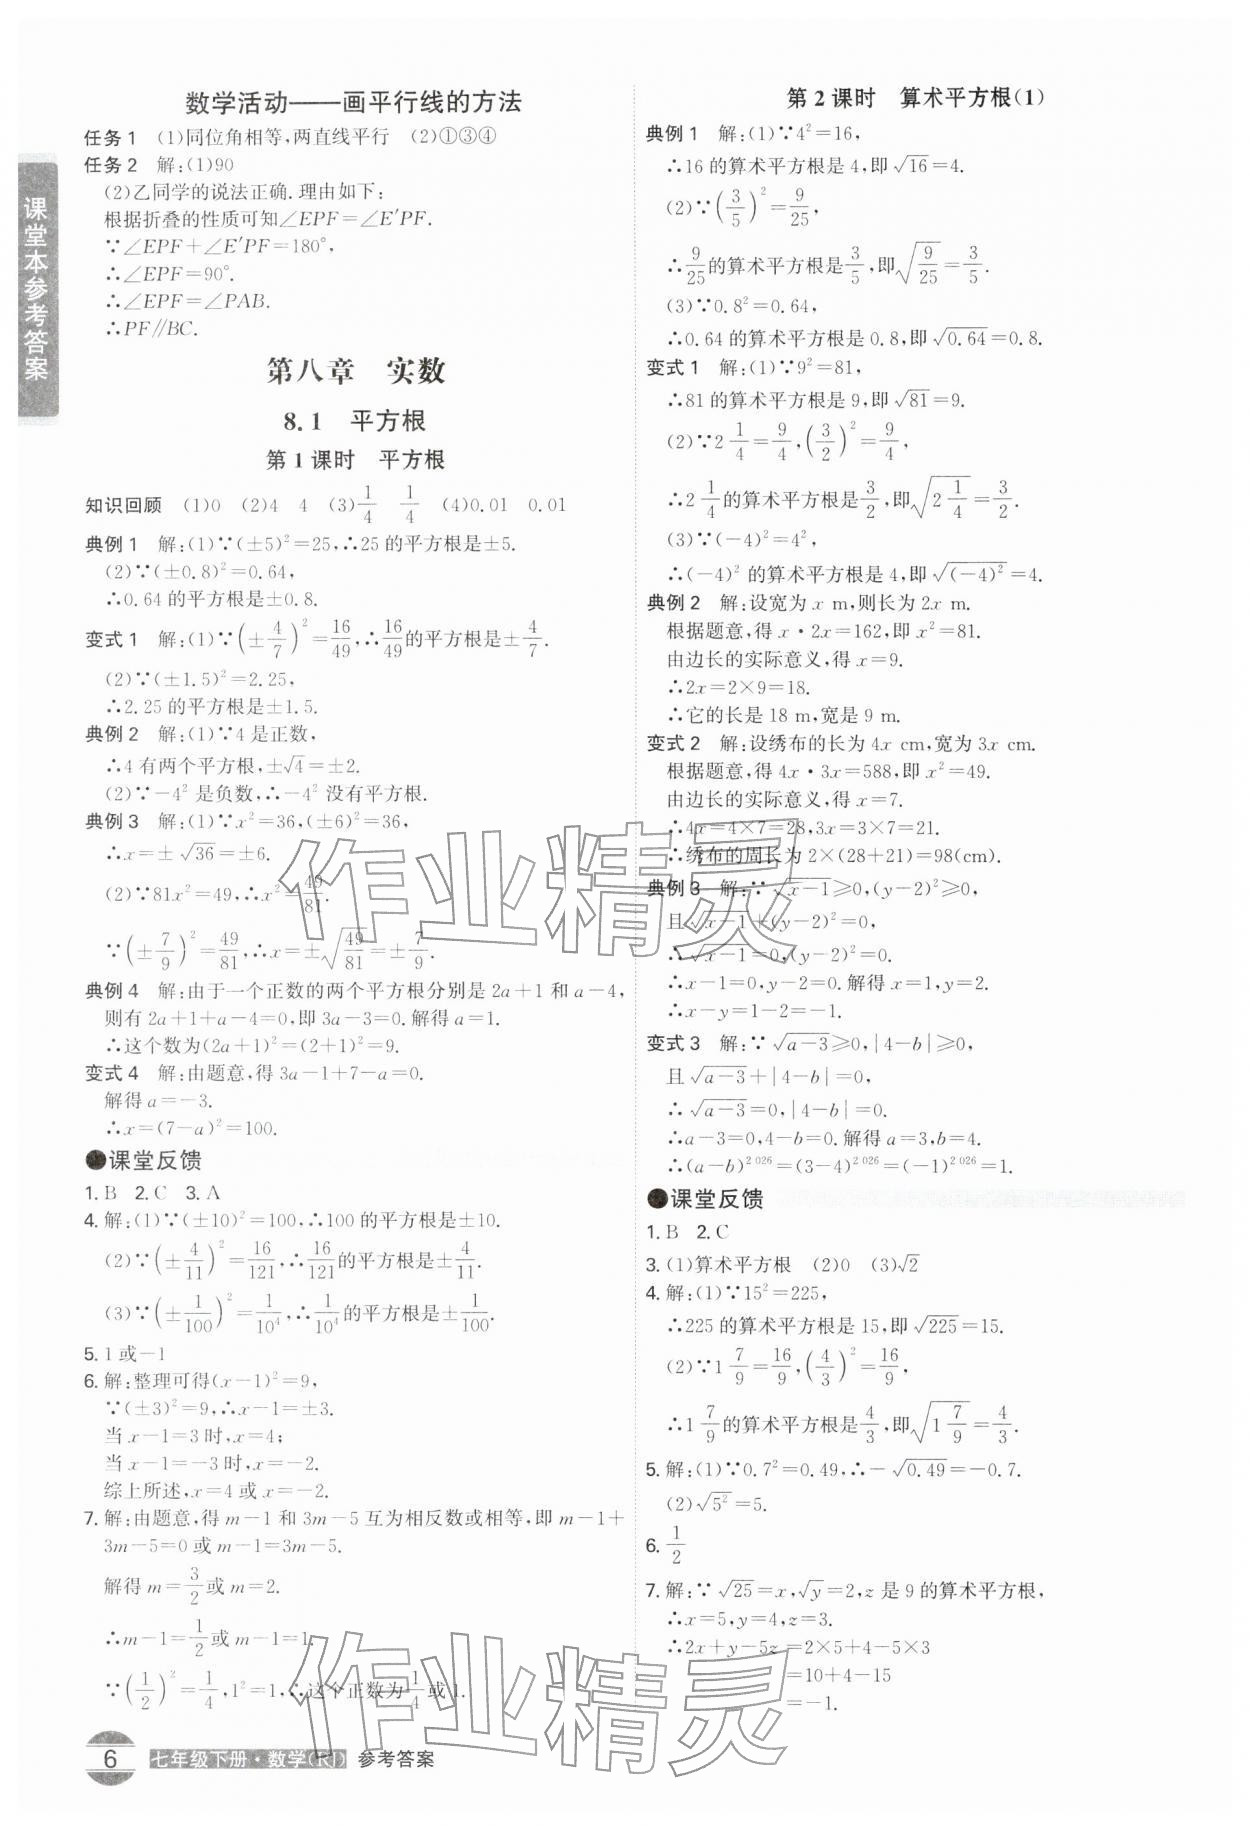 课堂本参考答案
数学活动——画平行线的方法
任务1 (1)同位角相等,两直线平行 (2)①③④
任务2 解:(1)90
(2)乙同学的说法正确.理由如下:
根据折叠的性质可知∠EPF=∠E′PF.
∵∠EPF+∠E′PF=180°,
∴∠EPF=90°.
∴∠EPF=∠PAB.
∴PF∥BC.
第八章 实数
8.1 平方根
第1课时 平方根
知识回顾 (1)0 (2)4 4 (3)1/4 1/4 (4)0.01 0.01
典例1 解:(1)∵(±5)²=25,∴25的平方根是±5.
(2)∵(±0.8)²=0.64,
∴0.64的平方根是±0.8.
变式1 解:(1)∵(±4/7)²=16/49,∴16/49的平方根是±4/7.
(2)∵(±1.5)²=2.25,
∴2.25的平方根是±1.5.
典例2 解:(1)∵4是正数,
∴4有两个平方根,±√4=±2.
(2)∵−4²是负数,∴−4²没有平方根.
典例3 解:(1)∵x²=36,(±6)²=36,
∴x=±√36=±6.
(2)∵81x²=49,∴x²=49/81.
∵(±7/9)²=49/81,∴x=±√(49/81)=±7/9.
典例4 解:由于一个正数的两个平方根分别是2a+1和a−4,
则有2a+1+a−4=0,即3a−3=0.解得a=1.
∴这个数为(2a+1)²=(2+1)²=9.
变式4 解:由题意,得3a−1+7−a=0.
解得a=−3.
∴x=(7−a)²=100.
课堂反馈
1.B 2.C 3.A
4.解:(1)∵(±10)²=100,∴100的平方根是±10.
(2)∵(±4/11)²=16/121,∴16/121的平方根是±4/11.
(3)∵(±1/100)²=1/10⁴,∴1/10⁴的平方根是±1/100.
5.1或−1
6.解:整理可得(x−1)²=9,
∵(±3)²=9,∴x−1=±3.
当x−1=3时,x=4;
当x−1=−3时,x=−2.
综上所述,x=4或x=−2.
7.解:由题意,得m−1和3m−5互为相反数或相等,即m−1+
3m−5=0或m−1=3m−5.
解得m=3/2或m=2.
∴m−1=1/2或m−1=1.
∵(1/2)²=1/4,1²=1,∴这个正数为1/4或1.
第2课时 算术平方根(1)
典例1 解:(1)∵4²=16,
∴16的算术平方根是4,即√16=4.
(2)∵(3/5)²=9/25,
∴9/25的算术平方根是3/5,即√(9/25)=3/5.
(3)∵0.8²=0.64,
∴0.64的算术平方根是0.8,即√0.64=0.8.
变式1 解:(1)∵9²=81,
∴81的算术平方根是9,即√81=9.
(2)∵2 1/4=9/4,(3/2)²=9/4,
∴2 1/4的算术平方根是3/2,即√(2 1/4)=3/2.
(3)∵(−4)²=4²,
∴(−4)²的算术平方根是4,即√(−4)²=4.
典例2 解:设宽为x m,则长为2x m.
根据题意,得x·2x=162,即x²=81.
由边长的实际意义,得x=9.
∴2x=2×9=18.
∴它的长是18 m,宽是9 m.
变式2 解:设绣布的长为4x cm,宽为3x cm.
根据题意,得4x·3x=588,即x²=49.
由边长的实际意义,得x=7.
∴4x=4×7=28,3x=3×7=21.
∴绣布的周长为2×(28+21)=98(cm).
典例3 解:∵√(x−1)≥0,(y−2)²≥0,
且√(x−1)+(y−2)²=0,
∴√(x−1)=0,(y−2)²=0.
∴x−1=0,y−2=0.解得x=1,y=2.
∴x−y=1−2=−1.
变式3 解:∵√(a−3)≥0,|4−b|≥0,
且√(a−3)+|4−b|=0,
∴√(a−3)=0,|4−b|=0.
∴a−3=0,4−b=0.解得a=3,b=4.
∴(a−b)²⁰²⁶=(3−4)²⁰²⁶=(−1)²⁰²⁶=1.
课堂反馈
1.B 2.C
3.(1)算术平方根 (2)0 (3)√2
4.解:(1)∵15²=225,
∴225的算术平方根是15,即√225=15.
(2)∵1 7/9=16/9,(4/3)²=16/9,
∴1 7/9的算术平方根是4/3,即√(1 7/9)=4/3.
5.解:(1)∵0.7²=0.49,∴−√0.49=−0.7.
(2)√5²=5.
6.1/2
7.解:∵√25=x,√y=2,z是9的算术平方根,
∴x=5,y=4,z=3.
∴2x+y−5z=2×5+4−5×3
=10+4−15
=−1.
作业精灵
作业精灵
6 七年级下册·数学(RJ) 参考答案